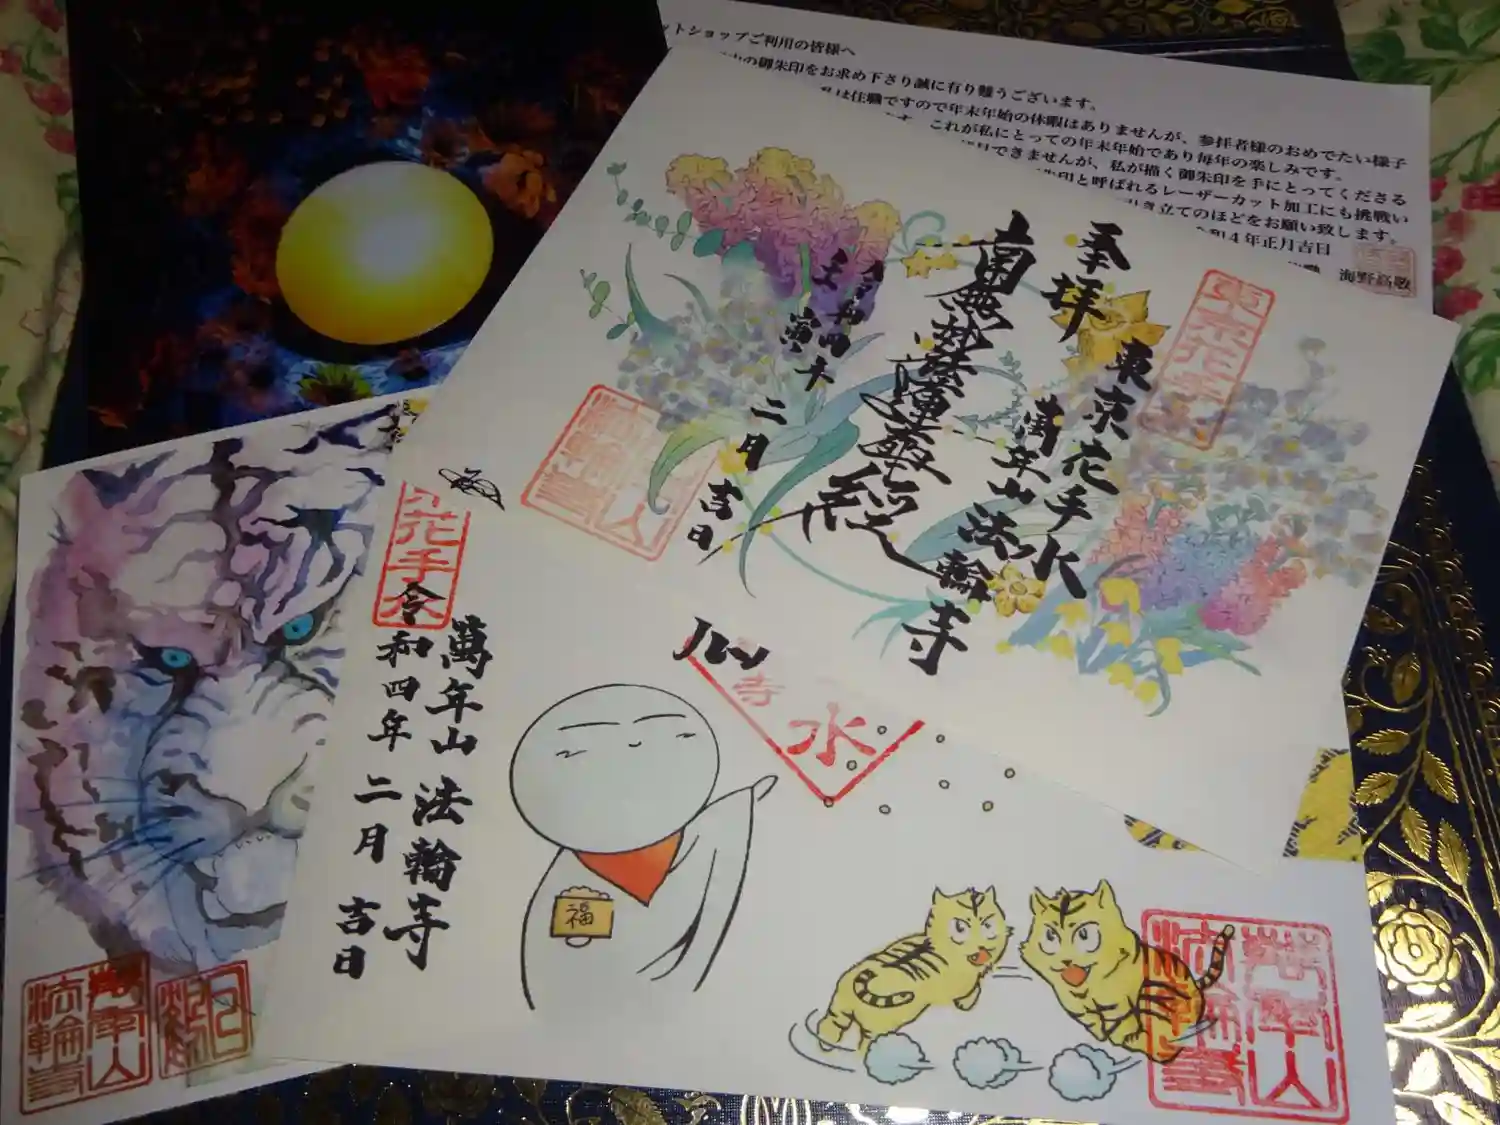 ットショップご利用の皆様へ
の御朱印をお求め下さり誠に有り難うございます。
は住職ですので年末年始の休暇はありませんが、参拝者様のおめでたい様子
これが私にとっての年末年始であり毎年の楽しみです。
できませんが、私が描く御朱印を手にとってくださる
朱印と呼ばれるレーザーカット加工にも挑戦い
き立てのほどをお願い致します。
4年正月吉日
海野高敬
奉拝
東京花手水
萬年山 法輪寺
南無妙法蓮華経
令和四年
壬寅
二月吉日
東京花手水
花手水
萬年山 法輪寺
令和四年 二月 吉日
寺
水
福
萬年山
法輪寺
萬年山
法輪寺